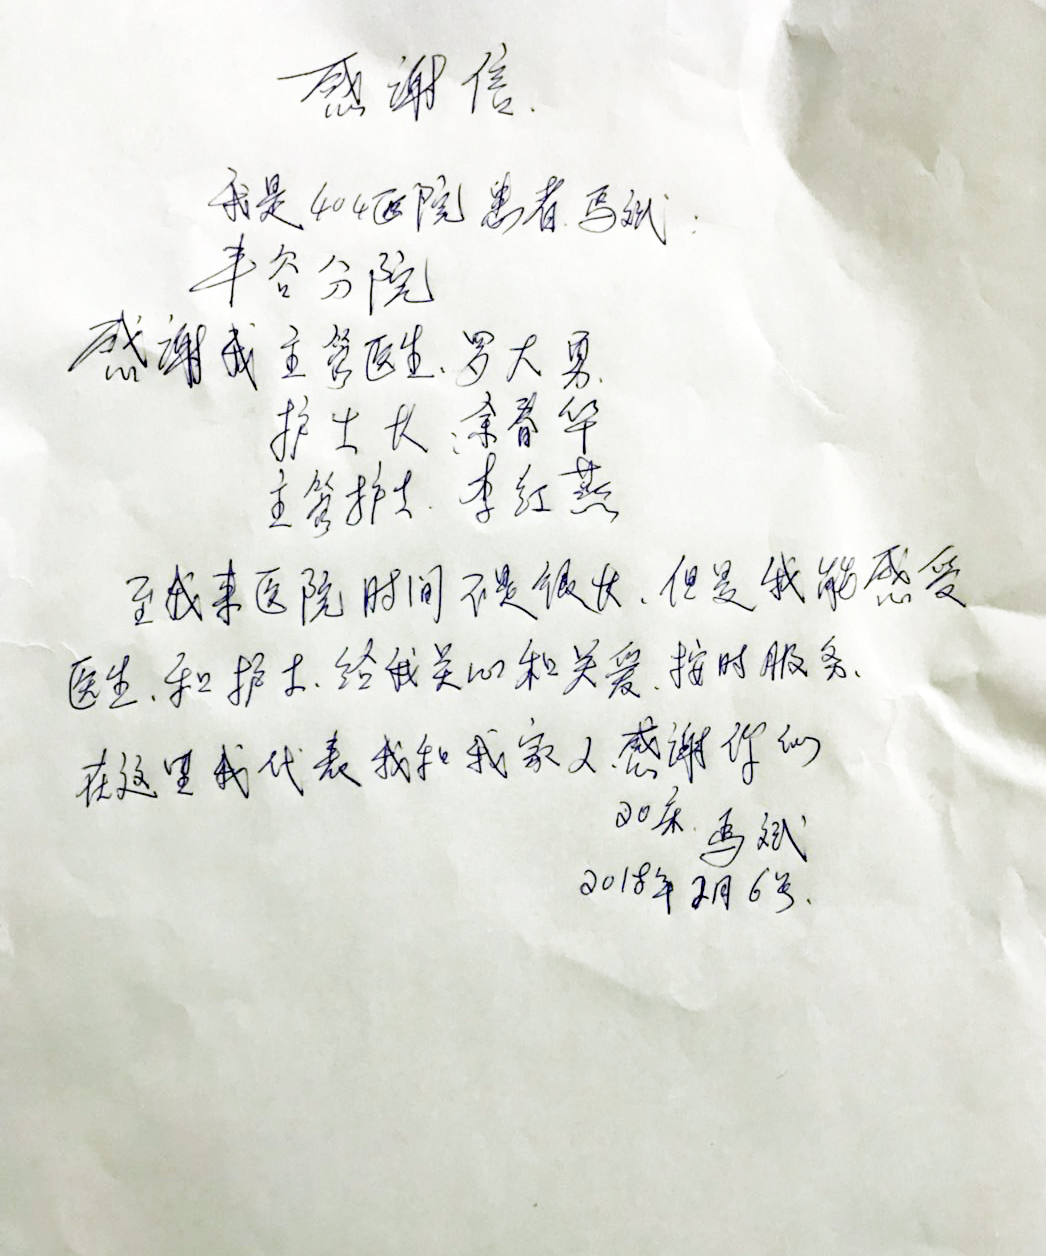 感谢信.
我是404医院患者.马斌:
丰谷分院
感谢我主管医生.罗大勇.
护士长:余春华
主管护士.李红燕
至我来医院时间不是很长.但是我能感受
医生.和护士.给我关心和关爱.按时服务.
在这里我代表我和我家人.感谢你们
20床.马斌
2018年2月6号.